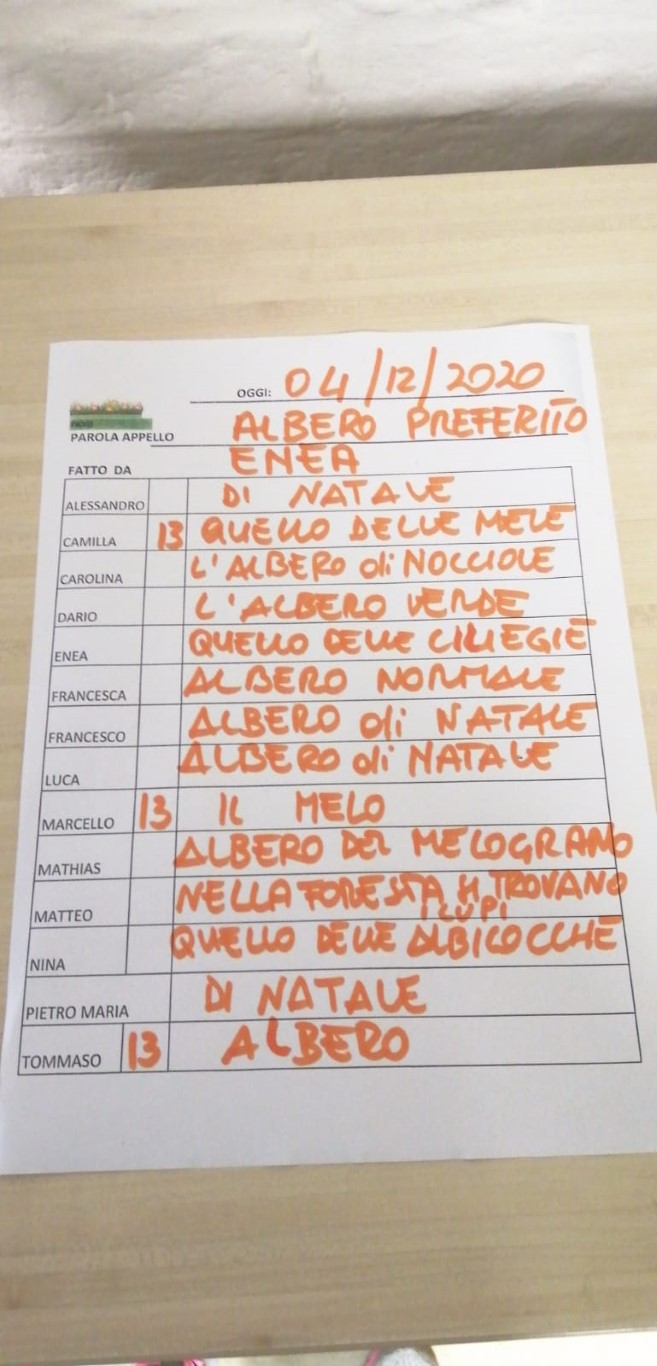 OGGI: 04/12/2020
PAROLA APPELLO ALBERO PREFERITO
FATTO DA ENEA
ALESSANDRO DI NATALE
CAMILLA 13 QUELLO DELLE MELE
CAROLINA L'ALBERO di NOCCIOLE
DARIO L'ALBERO VERDE
ENEA QUELLO DELLE CILIEGIE
FRANCESCA ALBERO NORMALE
FRANCESCO ALBERO di NATALE
LUCA ALBERO di NATALE
MARCELLO 13 IL MELO
MATHIAS ALBERO DEL MELOGRANO
MATTEO NELLA FORESTA SI TROVANO
I LUPI
NINA QUELLO DELLE ALBICOCCHE
PIETRO MARIA DI NATALE
TOMMASO 13 ALBERO